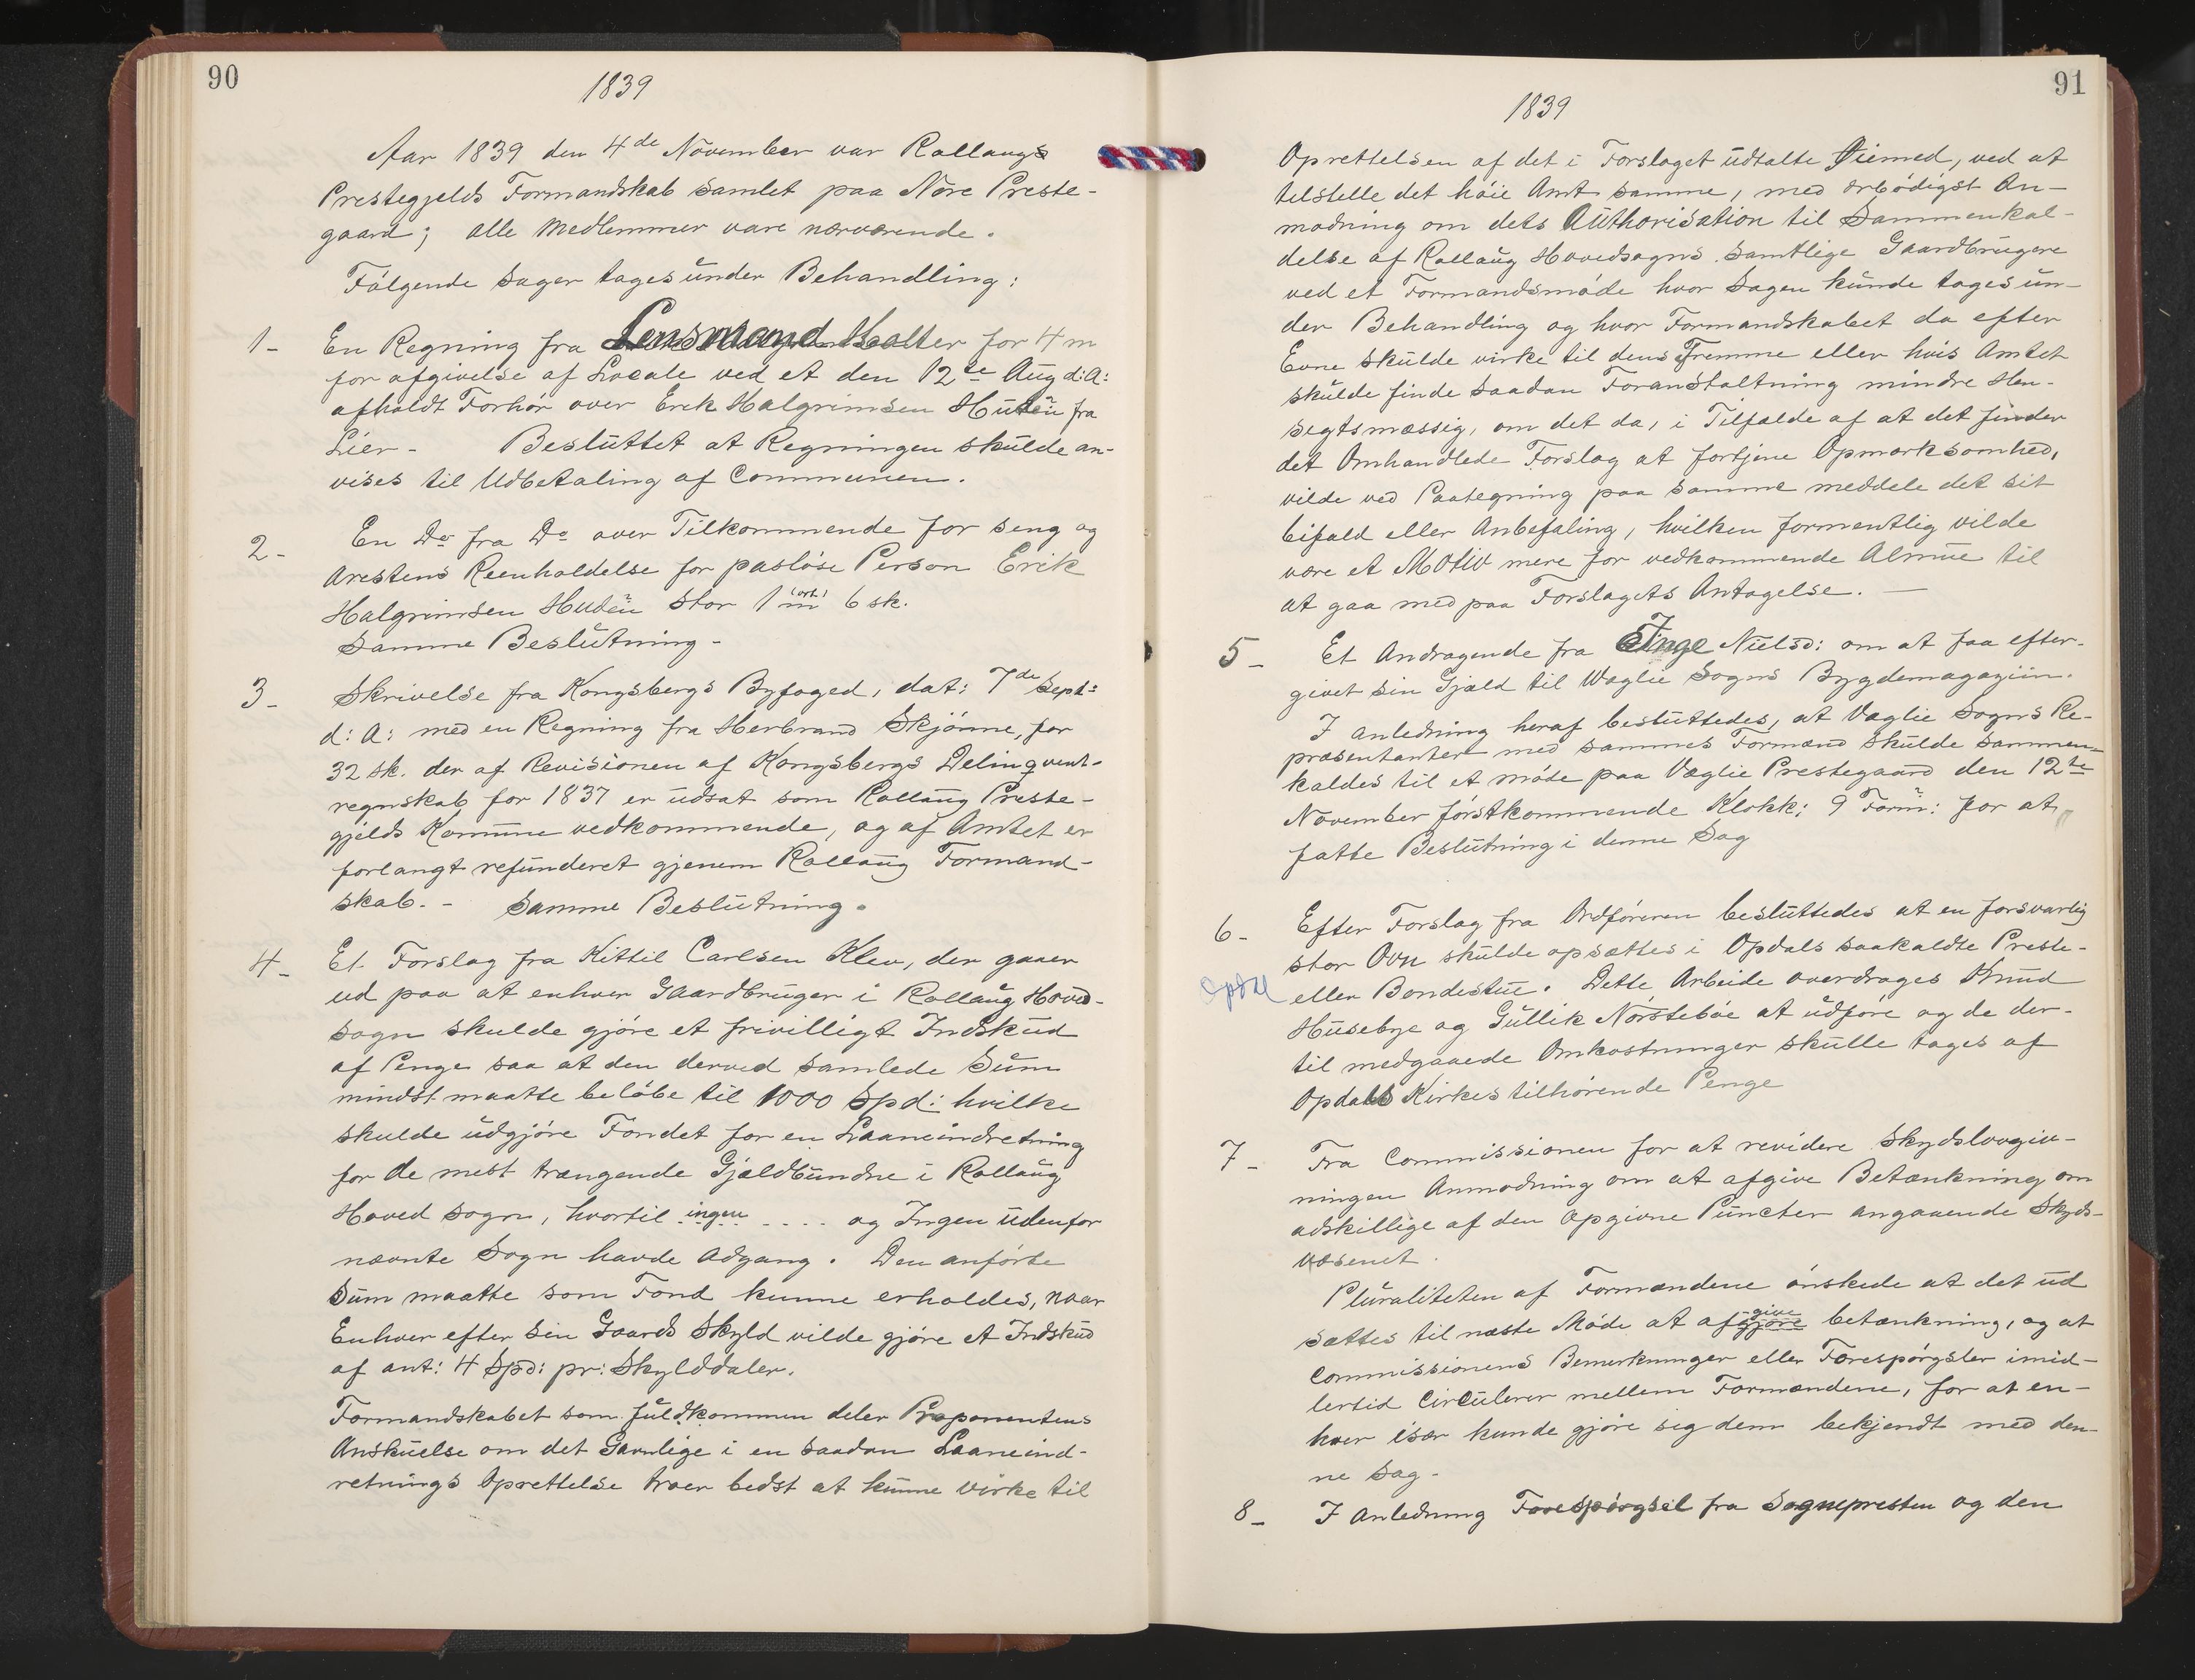 90
1839
Aar 1839 den 4de November var Rollaugs
Prestegjelds Formandskab samlet paa Nore Preste-
gaard; alle Medlemmer vare nærværende.
Følgende sager tages under Behandling:
1- En Regning fra Lensmand Halter for 4 m
for afgivelse af Locale ved et den 12te Aug d: A:
afholdt Forhør over Erik Halgrimsen fra
Lier - Besluttet at Regningen skulde an-
vises til Udbetaling af Communen.
2- En Do fra Do over Tilkommende for seng og
Arestens Reenholdelse for pasløse Person Erik
Halgrimsen stor 1 (ort) m 6 sk.
Samme Beslutning -
3- Skrivelse fra Kongsbergs Byfoged, dat: 7de Sept:
d: A: med en Regning fra Herbrand Skjønne, for
32 sk. der af Revisionen af Kongsbergs Delinqvent-
regnskab for 1837 er udsat som Rollaug Preste-
gjelds Komune vedkommende, og af Amtet er
forlangt refunderet gjenem Rollaug Formand-
skab. - Samme Beslutning.
4- Et Forslag fra Kittil Carlsen Klev, der gaaer
ud paa at enhver Gaardbruger i Rollaug Hoved-
sogn skulde gjøre et frivilligt Indskud
af Penge saa at den derved samlede Sum
mindst maatte beløbe til 1000 Spd: hvilke
skulde udgjøre Fondet for en Laaneindretning
for de mest trængende Gjældbundne i Rollaug
Hoved sogn, hvortil ingen .... og Ingen udenfor
nævnte Sogn havde Adgang. Den anførte
Sum maatte som Fond kunne erholdes, naar
Enhver efter sin Gaards Skyld vilde gjøre et Indskud
af ant: 4 Spd: pr: Skylddaler.
Formandskabet som fuldkommen deler Proponentens
Anskuelse om det Gavnlige i en saadan Laaneind-
retnings Oprettelse troer bedst at kunne virke til
91
1839
Oprettelsen af det i Forslaget udtalte Øiemed, ved at
tilstelle det høie Amt samme, med ærbødigst An-
modning om dets Authorisation til Sammenkal-
delse af Rollaug Hovedsogns samtlige Gaardbrugere
ved et Formandsmøde hvor Sagen kunde tages un-
der Behandling og hvor Formandskabet da efter
Evne skulde virke til dens Fremme eller hvis Amtet
skulde finde saadan Foranstaltning mindre Hen-
sigtsmæssig, om det da, i Tilfælde af at det finder
det Omhandlede Forslag at fortjene Opmærksomhed,
vilde ved Paategning paa samme meddele det sit
bifald eller Anbefaling, hvilken formentlig vilde
være et Motiv mere for vedkommende Almue til
at gaa med paa Forslagets Antagelse. -
5- Et Andragende fra Inge Nielsd: om at faa efter-
givet sin Gjæld til Væglie Sogns Bygdemagaziin.
I anledning heraf besluttedes, at Væglie Sogns Re-
præsentanter med sammes Formænd skulde sammen-
kaldes til et møde paa Væglie Prestegaard den 12te
November førstkommende Klokk: 9 Form: for at
fatte Beslutning i denne Sag
6- Efter Forslag fra Ordføreren besluttedes at en forsvarlig
stor Ovn skulde opsættes i Opdals saakaldte Preste-
Opdal
eller Bondestue. Dette Arbeide overdrages Knud
Husebye og Gullik Nørstebøe at udføre og de der-
til medgaaede Omkostninger skulle tages af
Opdals Kirkes tilhørende Penge
7- Fra Commissionen for at revidere Skydslovgiv-
ningen Anmodning om at afgive Betænkning om
adskillige af den Opgivne Puncter angaaende Skyds-
væsenet.
Pluraliteten af Formændene ønskede at det ud
sættes til næste Møde at afgjøre -give betænkning, og at
Commissionens Bemerkninger eller Forespørgsler imid-
lertid Circulerer mellem Formændene, for at en-
hver især kunde gjøre sig dem bekjendt med den-
ne Sag -
8- I Anledning Forespørgsel fra Sognepresten og den